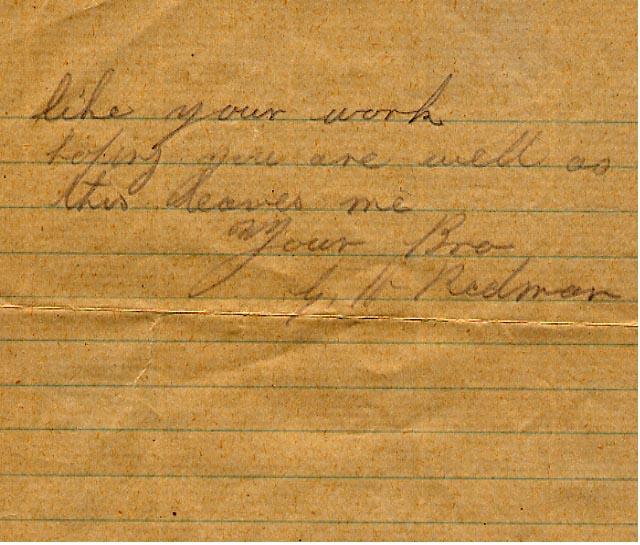 like your work
hoping you are well as
this leaves me
Your Bro
G. W Redman